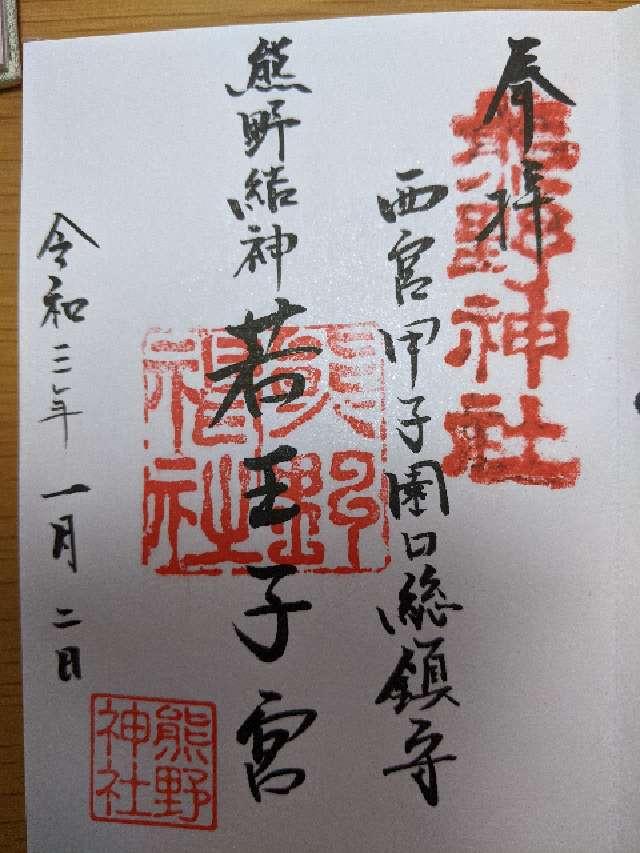 奉拝
熊野神社
西宮甲子園口総鎮守
熊野結神
若王子宮
熊野神社
令和三年一月二日
熊野神社